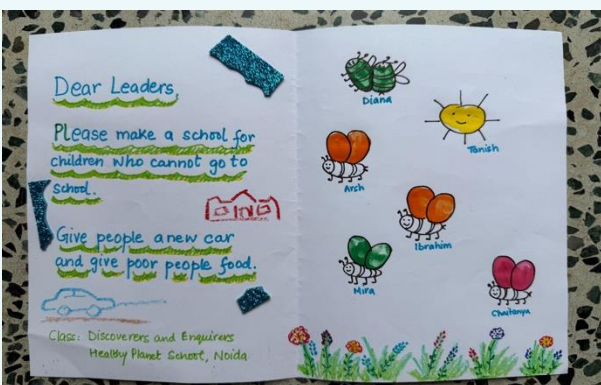 Dear Leaders,
PLease make a school for
children who cannot go to
school.
Give people a new car
and give poor people food.
Class: Discoverers and Enquirers
Healthy Planet School, Noida
Diana
Tanish
Arsh
Ibrahim
Mira
Chaitanya